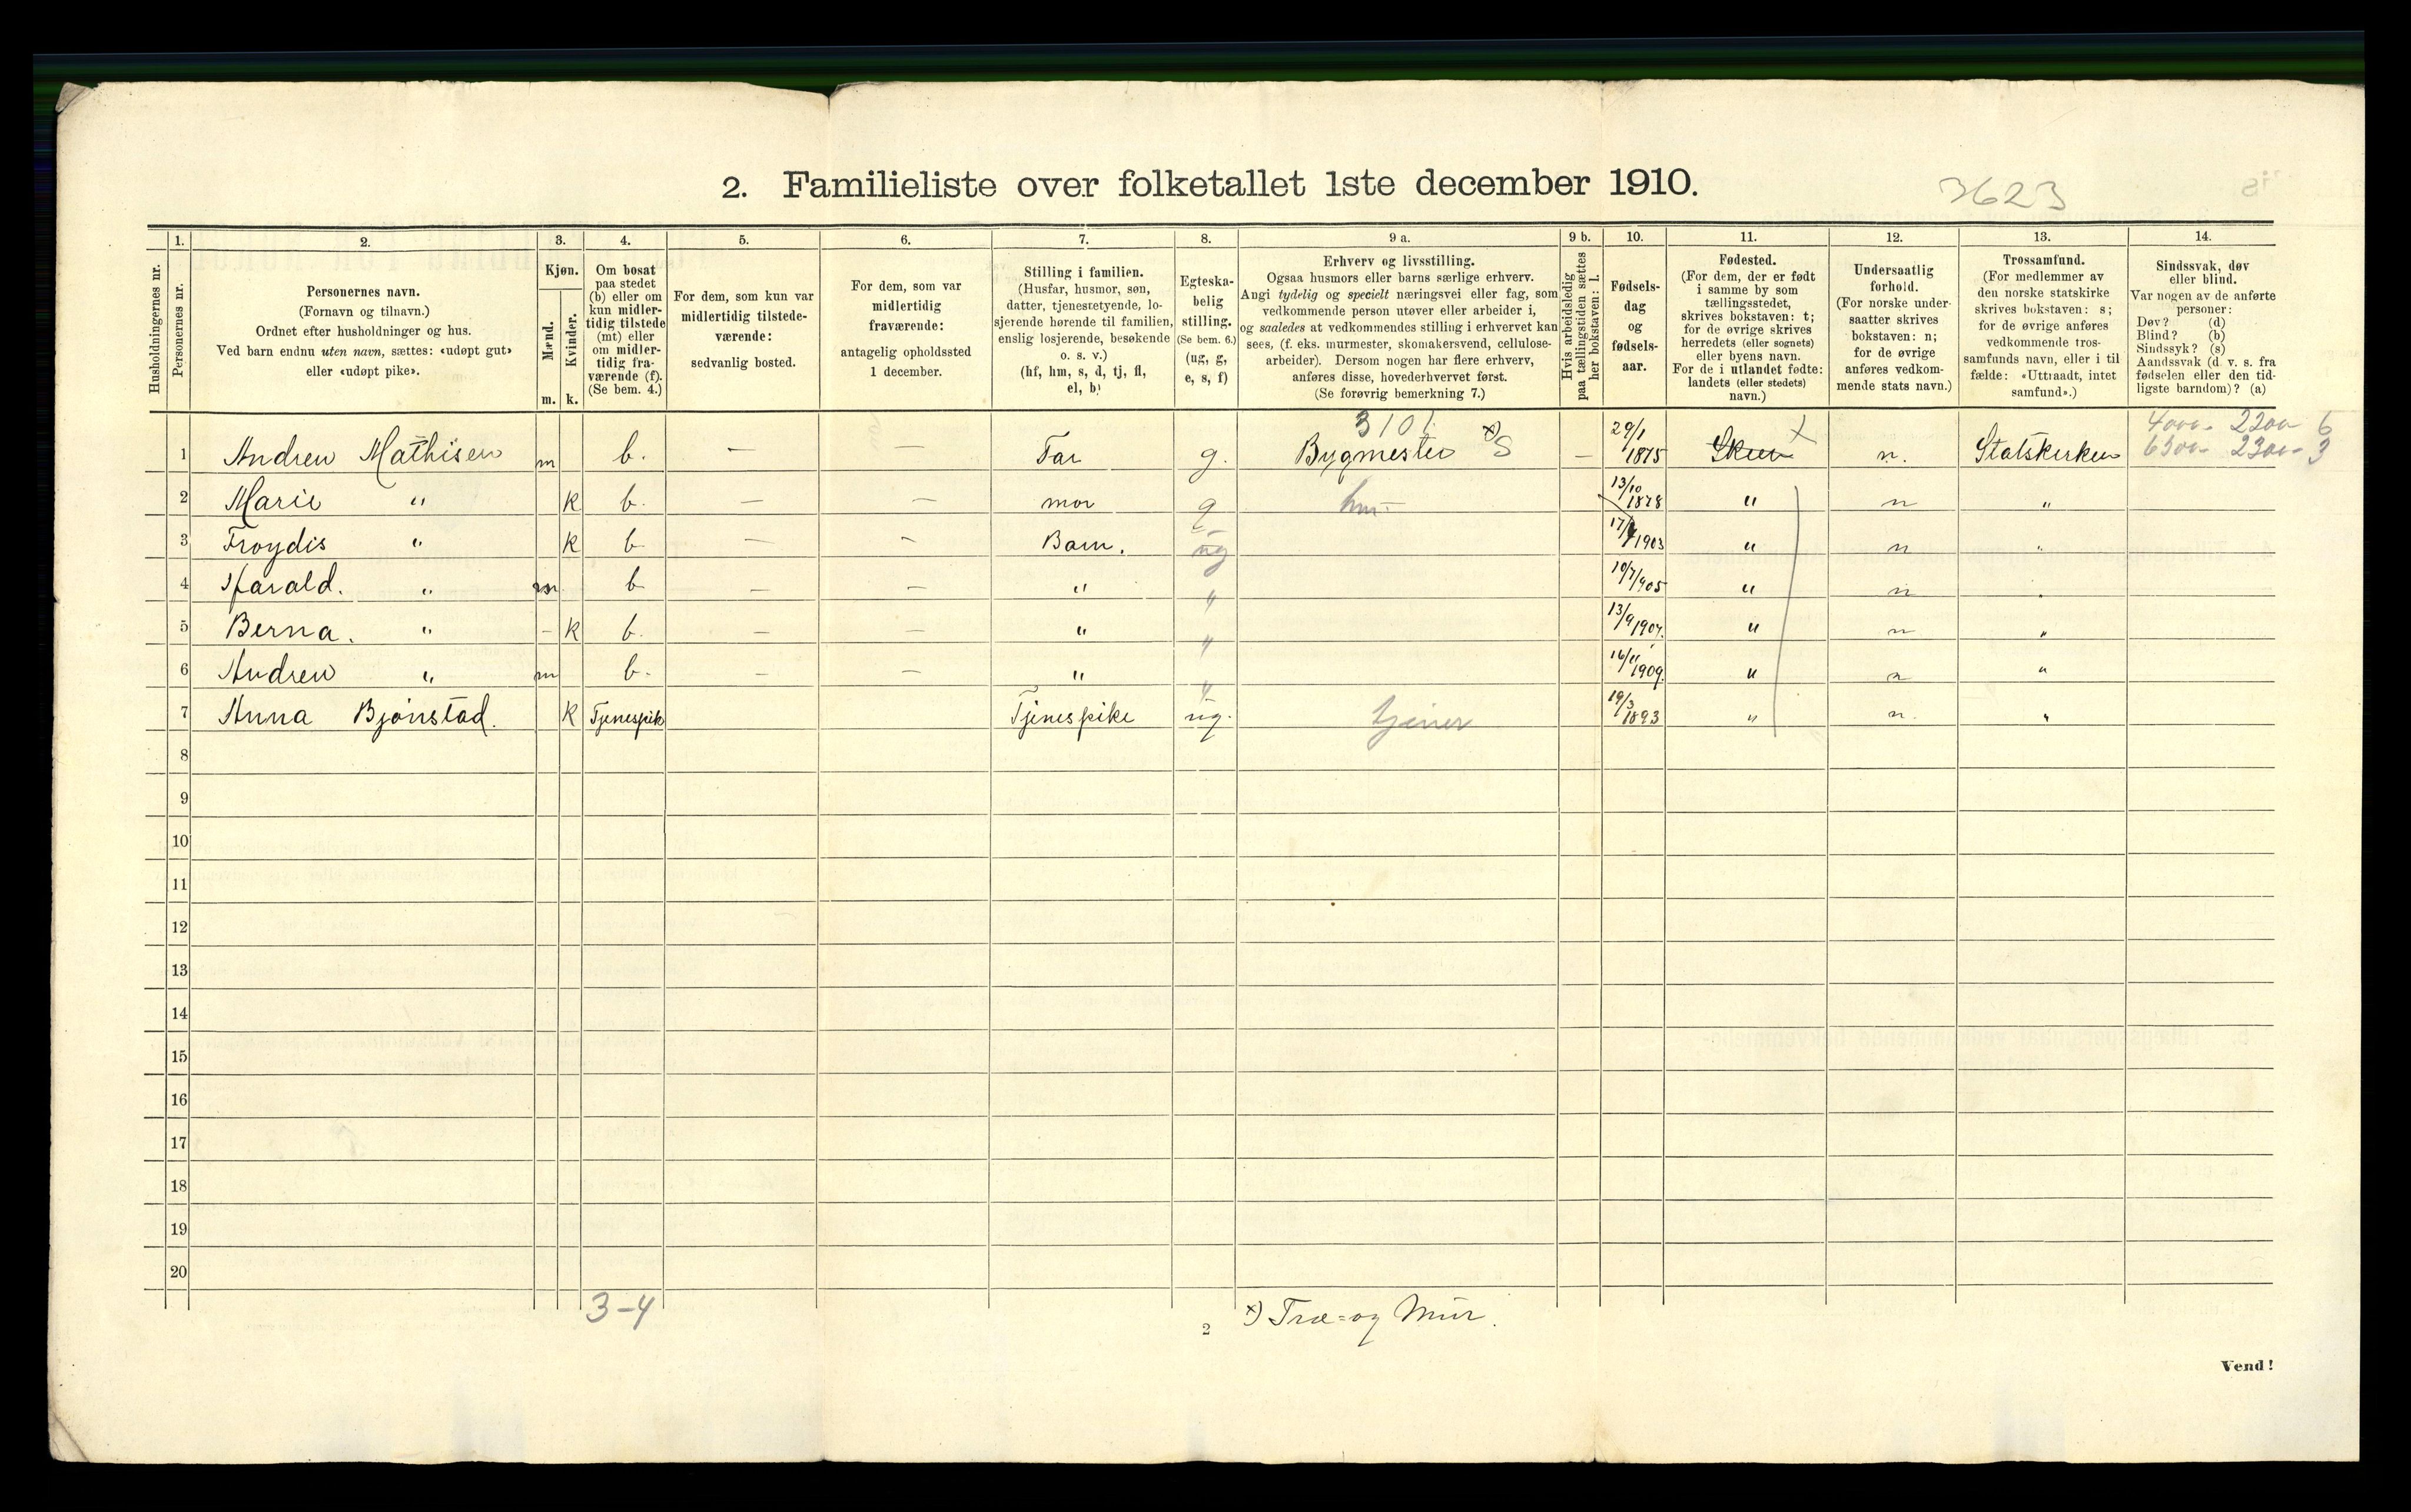 2. Familieliste over folketallet 1ste december 1910.
3623
Husholdningernes nr.
1. Personernes nr.
2. Personernes navn.
(Fornavn og tilnavn.)
Ordnet efter husholdninger og hus.
Ved barn endnu uten navn, sættes: «udøpt gut»
eller «udøpt pike».
3. Kjøn.
Mænd. m.
Kvinder. k.
4. Om bosat
paa stedet
(b) eller om
kun midler-
tidig tilstede
(mt) eller
om midler-
tidig fra-
værende (f).
(Se bem. 4.)
5. For dem, som kun var
midlertidig tilstede-
værende:
sedvanlig bosted.
6. For dem, som var
midlertidig
fraværende:
antagelig opholdssted
1 december.
7. Stilling i familien.
(Husfar, husmor, søn,
datter, tjenestetyende, lo-
sjerende hørende til familien,
enslig losjerende, besøkende
o. s. v.)
(hf, hm, s, d, tj, fl,
el, b)
8. Egteska-
belig
stilling.
(Se bem. 6.)
(ug, g,
e, s, f)
9 a. Erhverv og livsstilling.
Ogsaa husmors eller barns særlige erhverv.
Angi tydelig og specielt næringsvei eller fag, som
vedkommende person utøver eller arbeider i,
og saaledes at vedkommendes stilling i erhvervet kan
sees, (f. eks. murmester, skomakersvend, cellulose-
arbeider). Dersom nogen har flere erhverv,
anføres disse, hovederhvervet først.
(Se forøvrig bemerkning 7.)
9 b. Hvis arbeidsledig
paa tællingstiden sættes
her bokstaven: l.
10. Fødsels-
dag
og
fødsels-
aar.
11. Fødested.
(For dem, der er født
i samme by som
tællingsstedet,
skrives bokstaven: t;
for de øvrige skrives
herredets (eller sognets)
eller byens navn.
For de i utlandet fødte:
landets (eller stedets)
navn.)
12. Undersaatlig
forhold.
(For norske under-
saatter skrives
bokstaven: n;
for de øvrige
anføres vedkom-
mende stats navn.)
13. Trossamfund.
(For medlemmer av
den norske statskirke
skrives bokstaven: s;
for de øvrige anføres
vedkommende tros-
samfunds navn, eller i til
fælde: «Uttraadt, intet
samfund».)
14. Sindssvak, døv
eller blind.
Var nogen av de anførte
personer:
Døv? (d)
Blind? (b)
Sindssyk? (s)
Aandssvak (d. v. s. fra
fødselen eller den tid-
ligste barndom)? (a)
3101 4000- 2200- 6
1 Andrew Mathisen m b. — — Far g. Bygmester x) S — 29/1 1875 Skien x n. Statskirken 6300- 2300- 3
2 Marie " k b. — — mor g hm- 13/10 1878 " n "
3 Froydis " k b — - Barn. ug 1903 " n "
4 Harald. " m b — — " " 10/7 1905 " n "
5 Berna. " - k b. — — " " 13/9 1907. " n "
6 Andrew " m b. — — " " 16/11 1909. " n "
7 Anna Bjønstad. k Tjenespik Tjenespike ug. tjener 19/3 1893 " n. "
8
9
10
11
12
13
14
15
16
17
18
19
20
3-4
x) Træ= og Mur.
2
Vend!